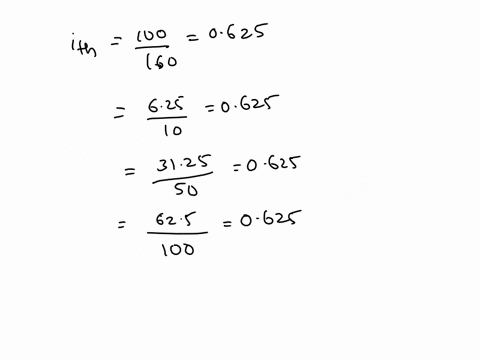 i_th = 100/160 = 0.625
= 6.25/10 = 0.625
= 31.25/50 = 0.625
= 62.5/100 = 0.625